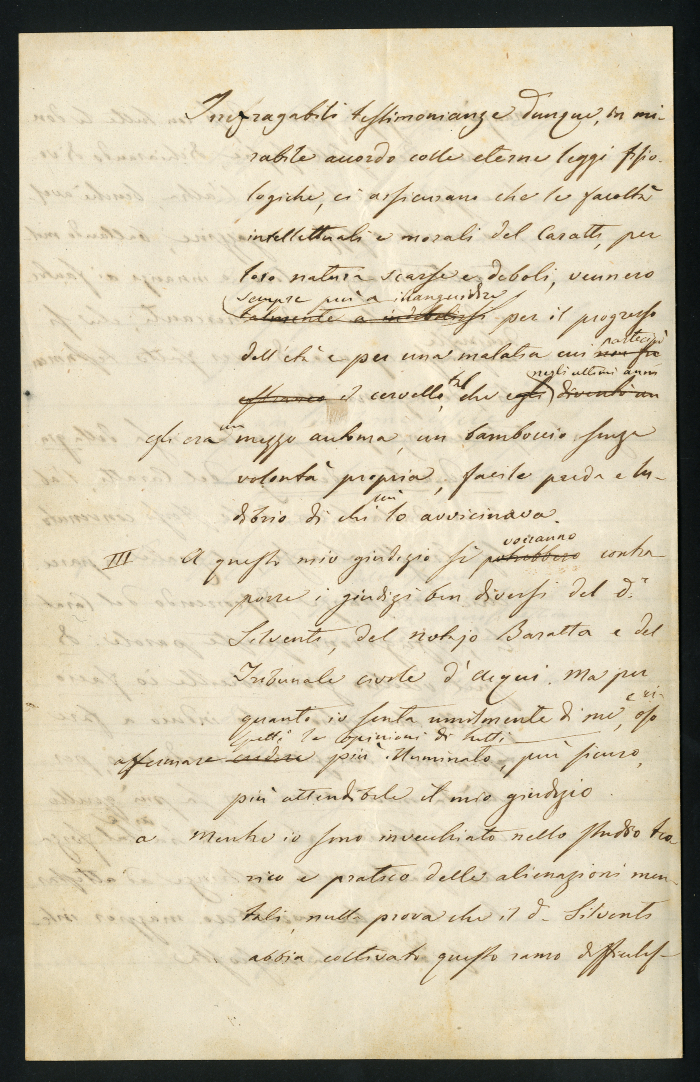 Irrefragabili testimonianze dunque, in mi-
rabile accordo colle eterne leggi fisio-
logiche, ci assicurano che le facoltà
intellettuali e morali del Caratti, per
loro natura scarse e deboli, vennero
sempre più a illanguidire
talmente a indebolirsi per il progresso
dell'età e per una malatia cui non fu
partecipò
negli ultimi anni
estraneo il cervello, tal che egli diventò un
egli era un mezzo automa, un bamboccio senza
volontà propria, facile preda e lu-
dibrio di chi più lo avvicinava.
vorranno
III A questo mio giudizio si potrebbero contra
porre i giudizi ben diversi del d.r
Silventi, del notajo Baratta e del
Tribunale civile d'Acqui. Ma per
quanto io senta umilmente di me, e ri-
oso
spetti le opinioni di tutti
affermare credere più illuminato, più sicuro,
più attendibile il mio giudizio.
a Mentre io sono invecchiato nello studio teo
rico e pratico delle alienazioni men-
tali, nulla prova che il d.r Silventi
abbia coltivato questo ramo difficilis-